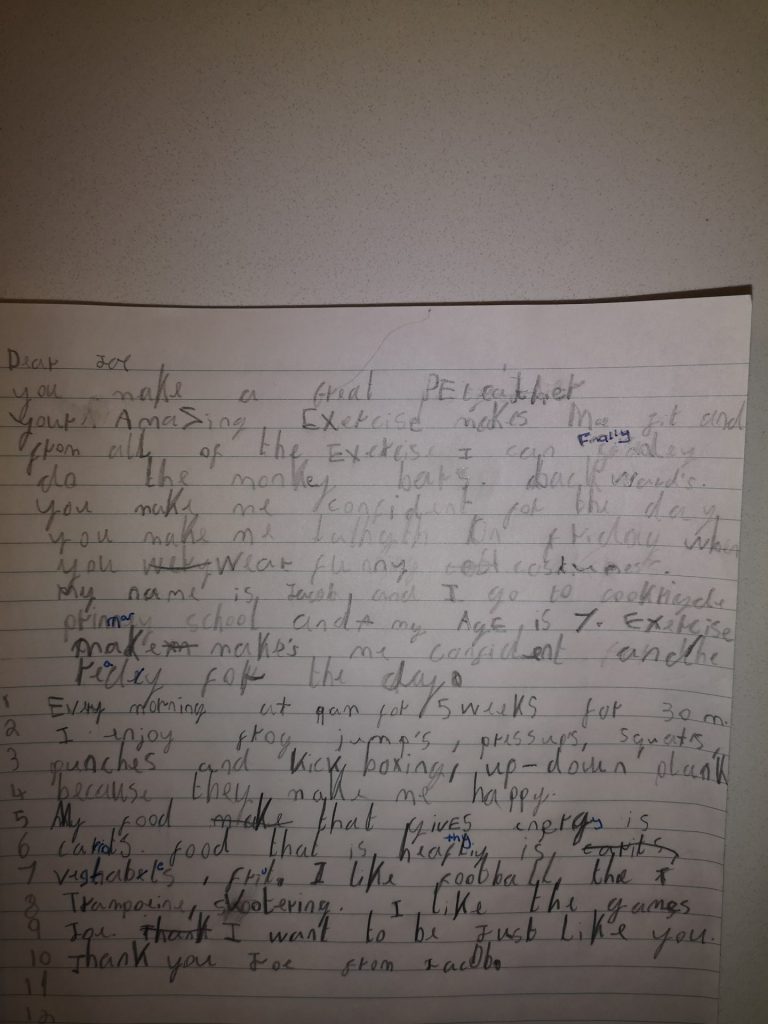 Dear Joe
you make a Great PE teather
your Amasing Exercise makes Me fit and
from all of the Exercise I can Finally
do the monkey bars. backward's.
you make me confident for the day
you make me on friday when
you Wear funny costumes.
My name is Jacob, and I go to
primary school and my AgE is 7. Exercise
make's me confident and
ready for the day.
1 Every morning at 9am for 5 weeks for 30 m.
2 I enjoy frog jump's, pressups, squats,
3 punches and kick boxing, up-down plank
4 because they make me happy.
5 My food that givEs energy is
6 carots. food that is healthy is,
7 vegtabels, frut. I like football, the
8 Trampoline, skootering. I like the games
9 Joe. I want to be Just like you.
10 Thank you Joe from Jacob.
11
12